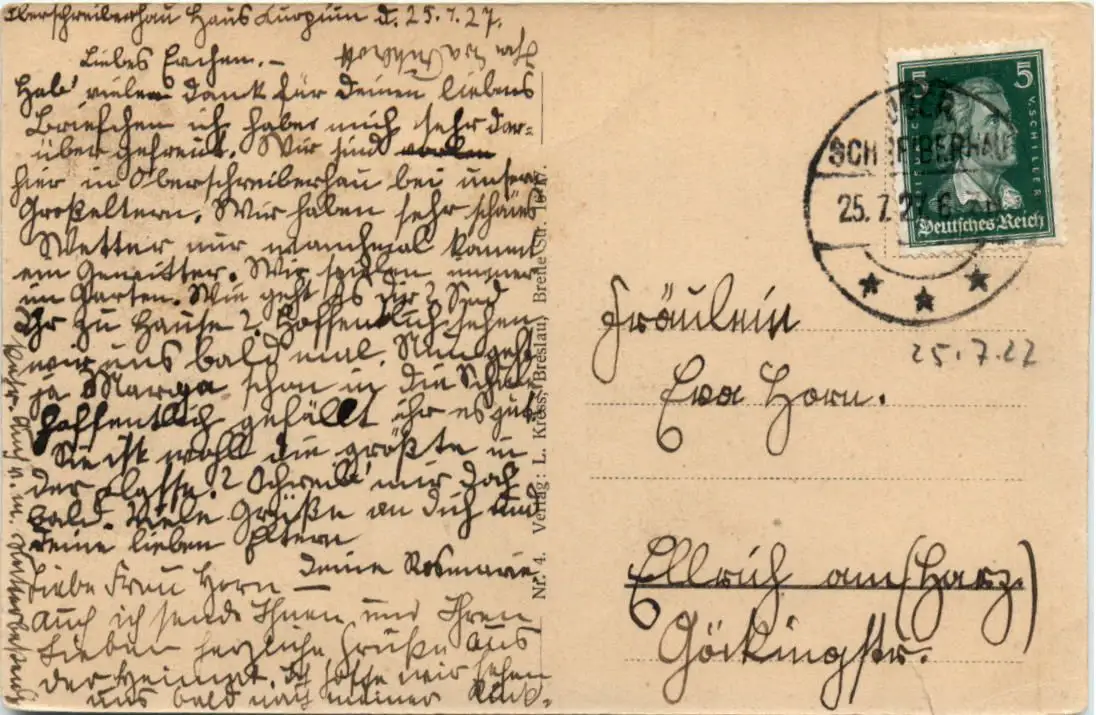 Oberschreiberhau Haus Kurpiun d. 25.7.27.
Liebes Evchen. –
Hab' vielen Dank für deinen liebens
Briefchen ich habe mich sehr dar=
über gefreut. Wir sind
hier in Oberschreiberhau bei unsern
Großeltern. Wir haben sehr schönes
Wetter nur manchmal kommt
ein Gewitter. Wir spielen immer
im Garten. Wie geht es dir? Seid
Ihr zu Hause?. Hoffentlich sehen
wir uns bald mal. Nun geht
ja Marga schon in die Schule
hoffentlich gefällt ihr es gut.
Sie ist wohl die größte in
der Classe.? Schreib' mir doch
bald. Viele Grüße an dich und
deine lieben Eltern
Deine Rosemarie
Liebe Frau Horn —
Auch ich sende Ihnen und Ihren
Lieben herzliche Grüße aus
der Heimat. Ich hoffe wir sehen
uns bald nach meiner Rück-
kehr.
Nr. 4. Verlag: L. Kress, Breslau, Breite Str.
5 5
V. SCHILLER
Deutsches Reich
OBER
SCHREIBERHAU
25.7.27
Fräulein
25.7.27
Eva Horn.
Ellrich am (Harz.)
Göckingstr.